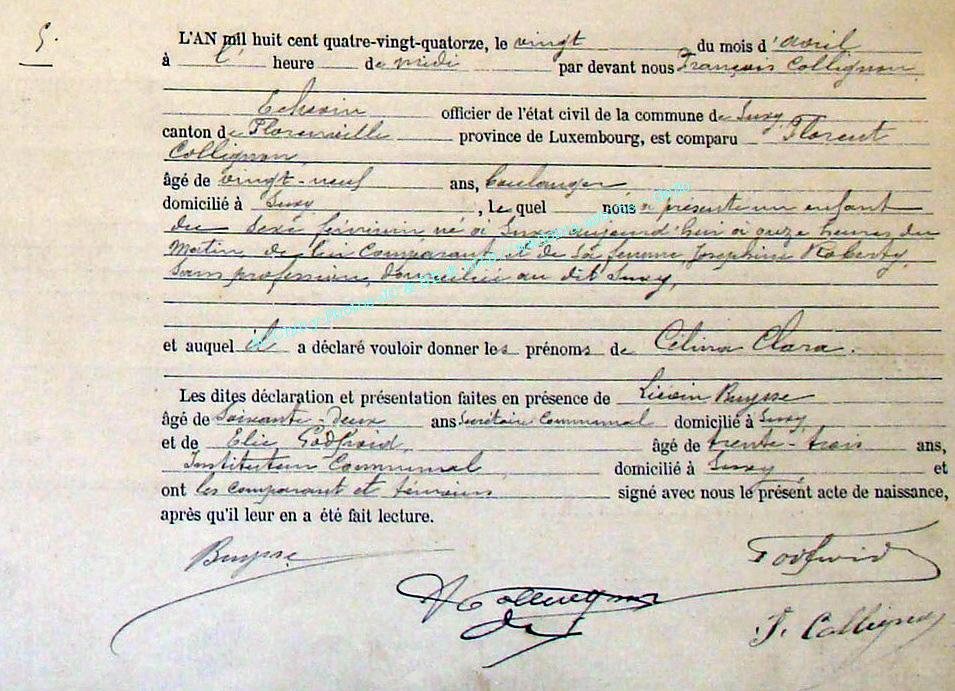 5.
L'AN mil huit cent quatre-vingt-quatorze, le vingt du mois d'avril
à l' heure de midi par devant nous François Collignon,
Echevin officier de l'état civil de la commune de Suxy,
canton de Florenville province de Luxembourg, est comparu Florent
Collignon,
âgé de vingt-neuf ans, boulanger,
domicilié à Suxy, lequel nous a présenté un enfant
du sexe féminin né à Suxy aujourd'hui à onze heures du
matin, de lui comparant et de sa femme, Joséphine Roberty,
sans profession, domiciliée au dit Suxy,
et auquel il a déclaré vouloir donner les prénoms de Célina Clara.
Les dites déclaration et présentation faites en présence de Liévin Buysse
âgé de soixante-deux ans Secrétaire Communal domicilié à Suxy,
et de Elie Godfroid, âgé de trente-trois ans,
Instituteur Communal, domicilié à Suxy et
ont les comparant et témoins signé avec nous le présent acte de naissance,
après qu'il leur en a été fait lecture.
Buysse Godfroid
Collignon
F. Collignon